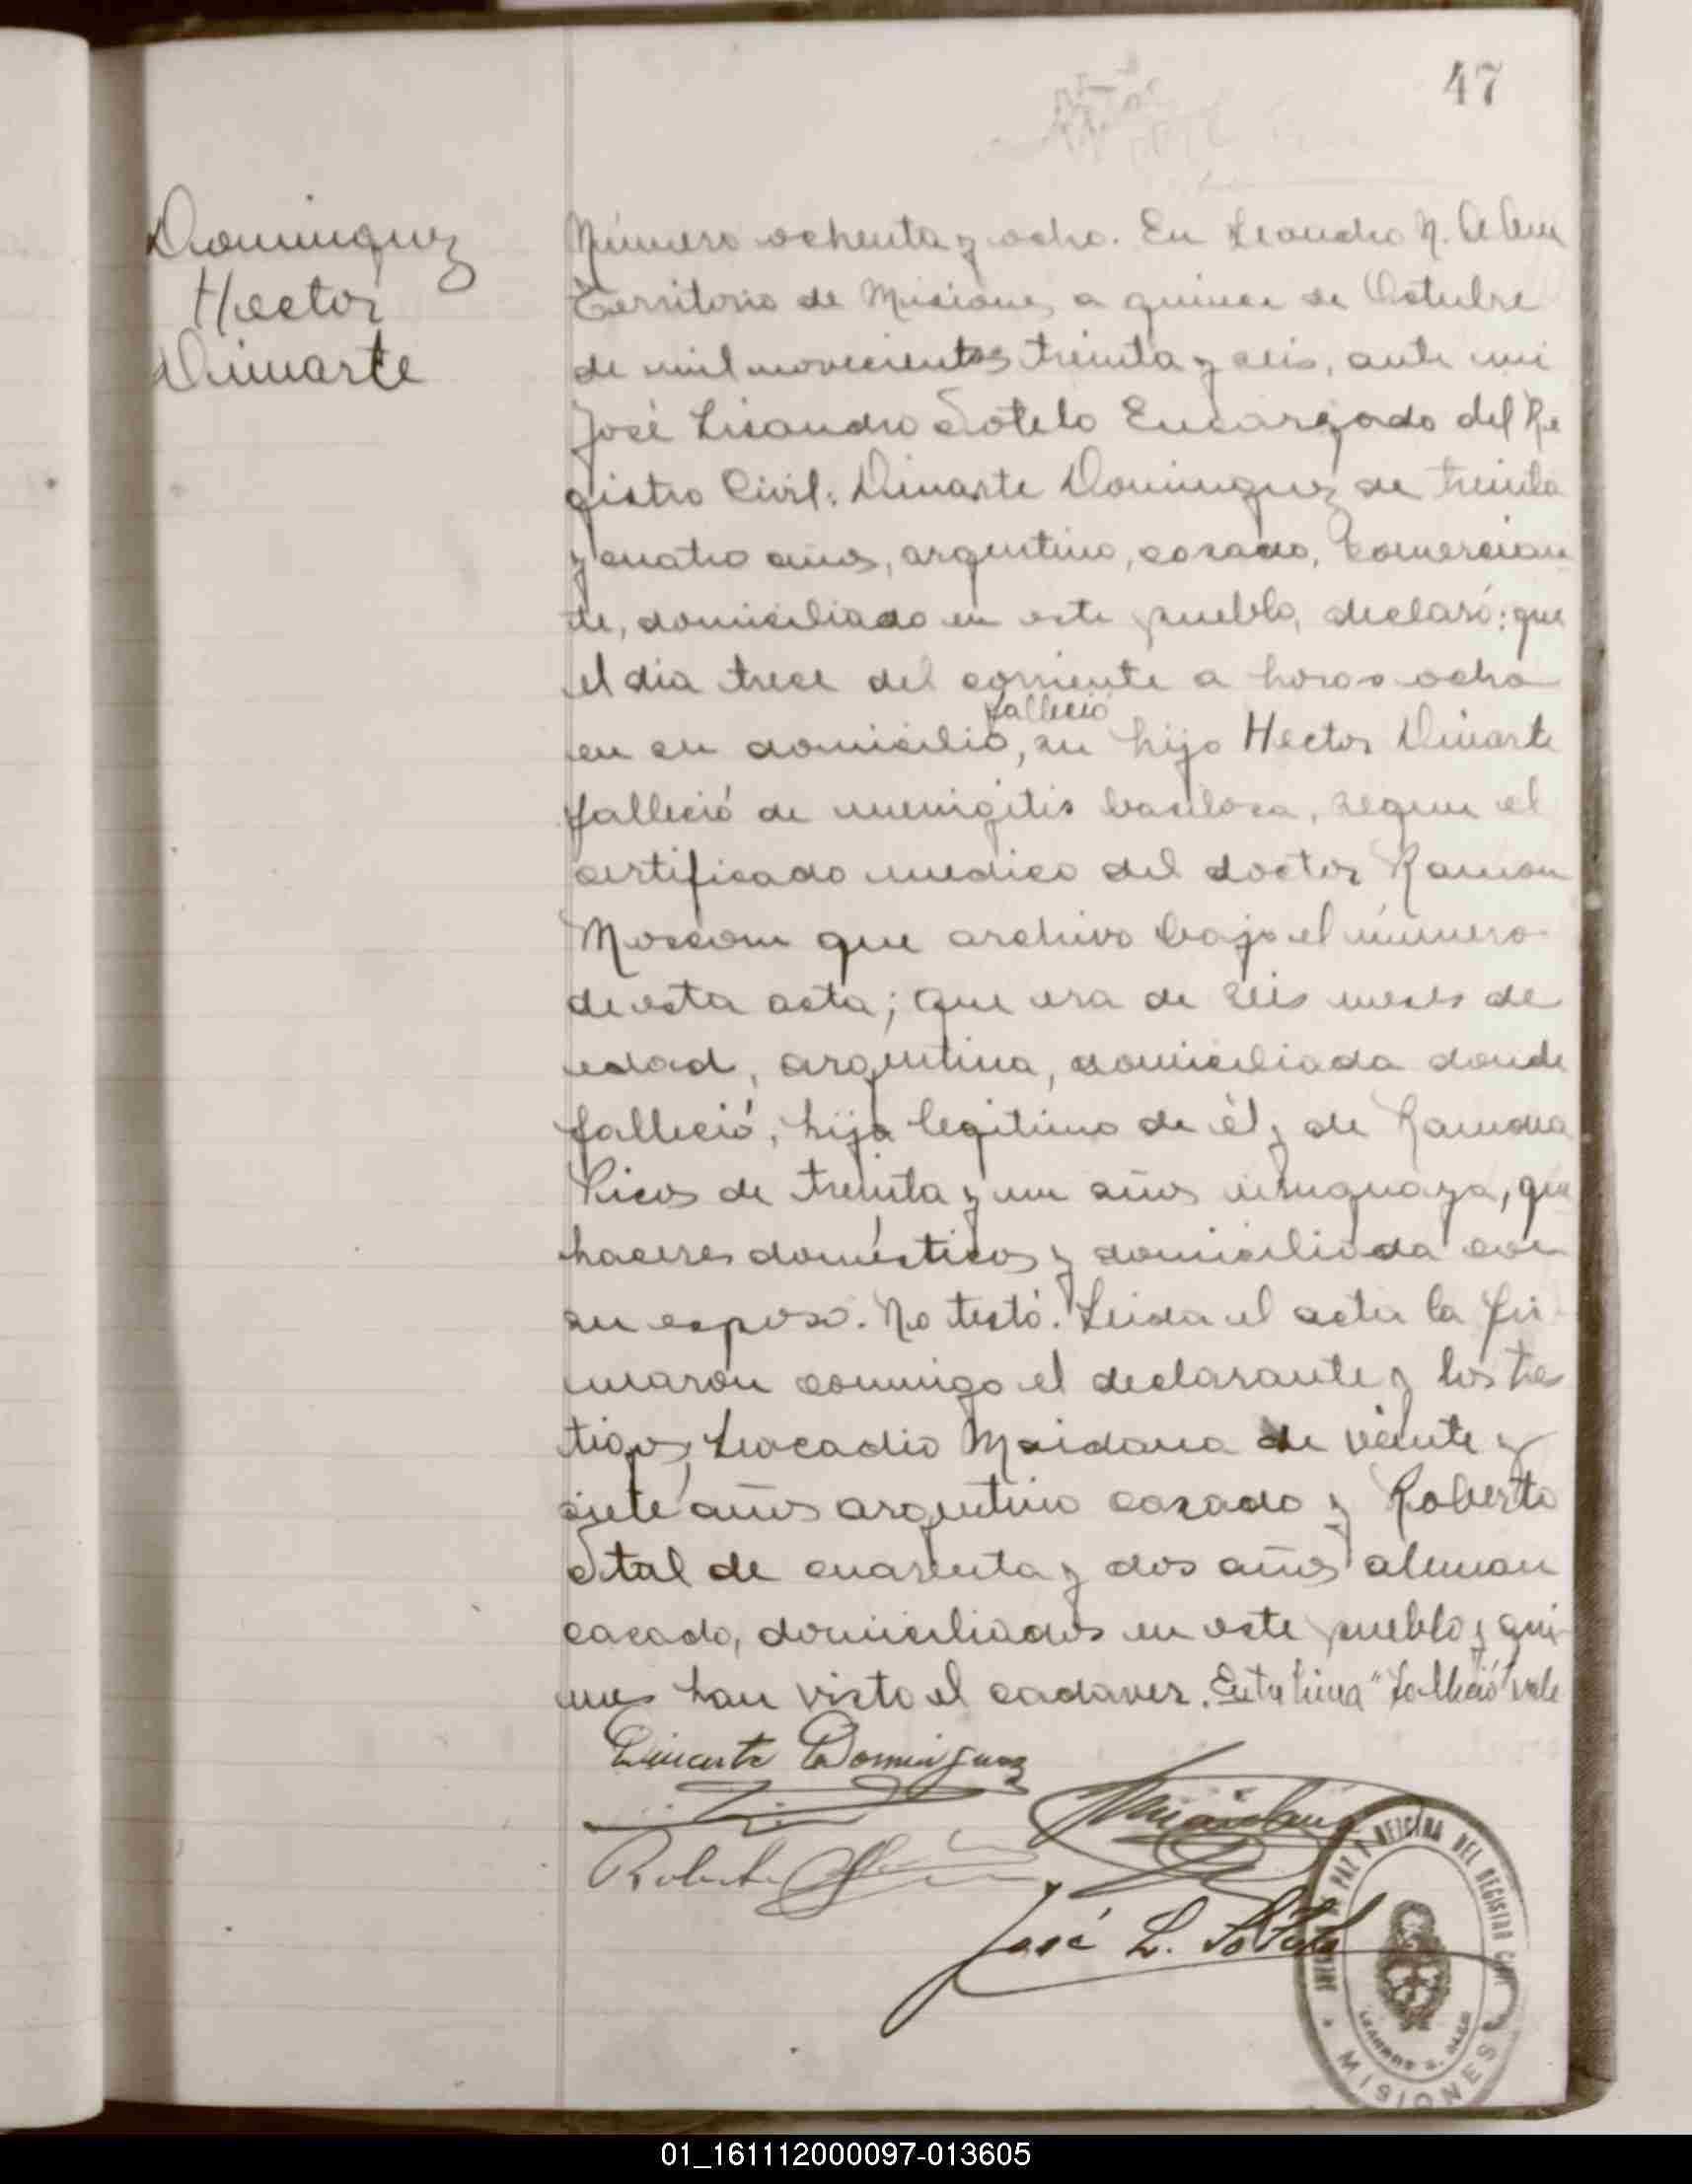 47
Dominguez
Hector
Dinarte
Número ochenta y ocho. En Leandro N. Alem
Territorio de Misiones, a quince de Octubre
de mil novecientos treinta y seis, ante mi
José Lisandro Sotelo Encargado del Re
gistro Civil: Dinarte Dominguez de treinta
y cuatro años, argentino, casado, comercian
te, domiciliado en este pueblo, declaró: que
el dia trece del corriente a horas ocho
falleció
en su domicilio, su hijo Hector Dinarte
falleció de menigitis basilosa, segun el
certificado medico del doctor Ramon
que archivo bajo el número
de esta acta; que era de seis meses de
edad, argentina, domiciliada donde
falleció, hijo legitimo de él y de Ramona
de treinta y un años uruguaya, que
haceres domésticos y domiciliada con
su esposo. No testó. Leida el acta la fir
maron conmigo el declarante y los tes
tigos, Leocadio Maidana de veinte y
siete años argentino casado y Roberto
Stal de cuarenta y dos años aleman
casado, domiciliados en este pueblo y qui
nes han visto el cadaver. Entre linea "falleció" vale
Dinarte Dominguez
Maidana
José L. Sotelo
JUZGADO DE PAZ Y OFICINA DEL REGISTRO CIVIL
LEANDRO N. ALEM
MISIONES
01_161112000097-013605